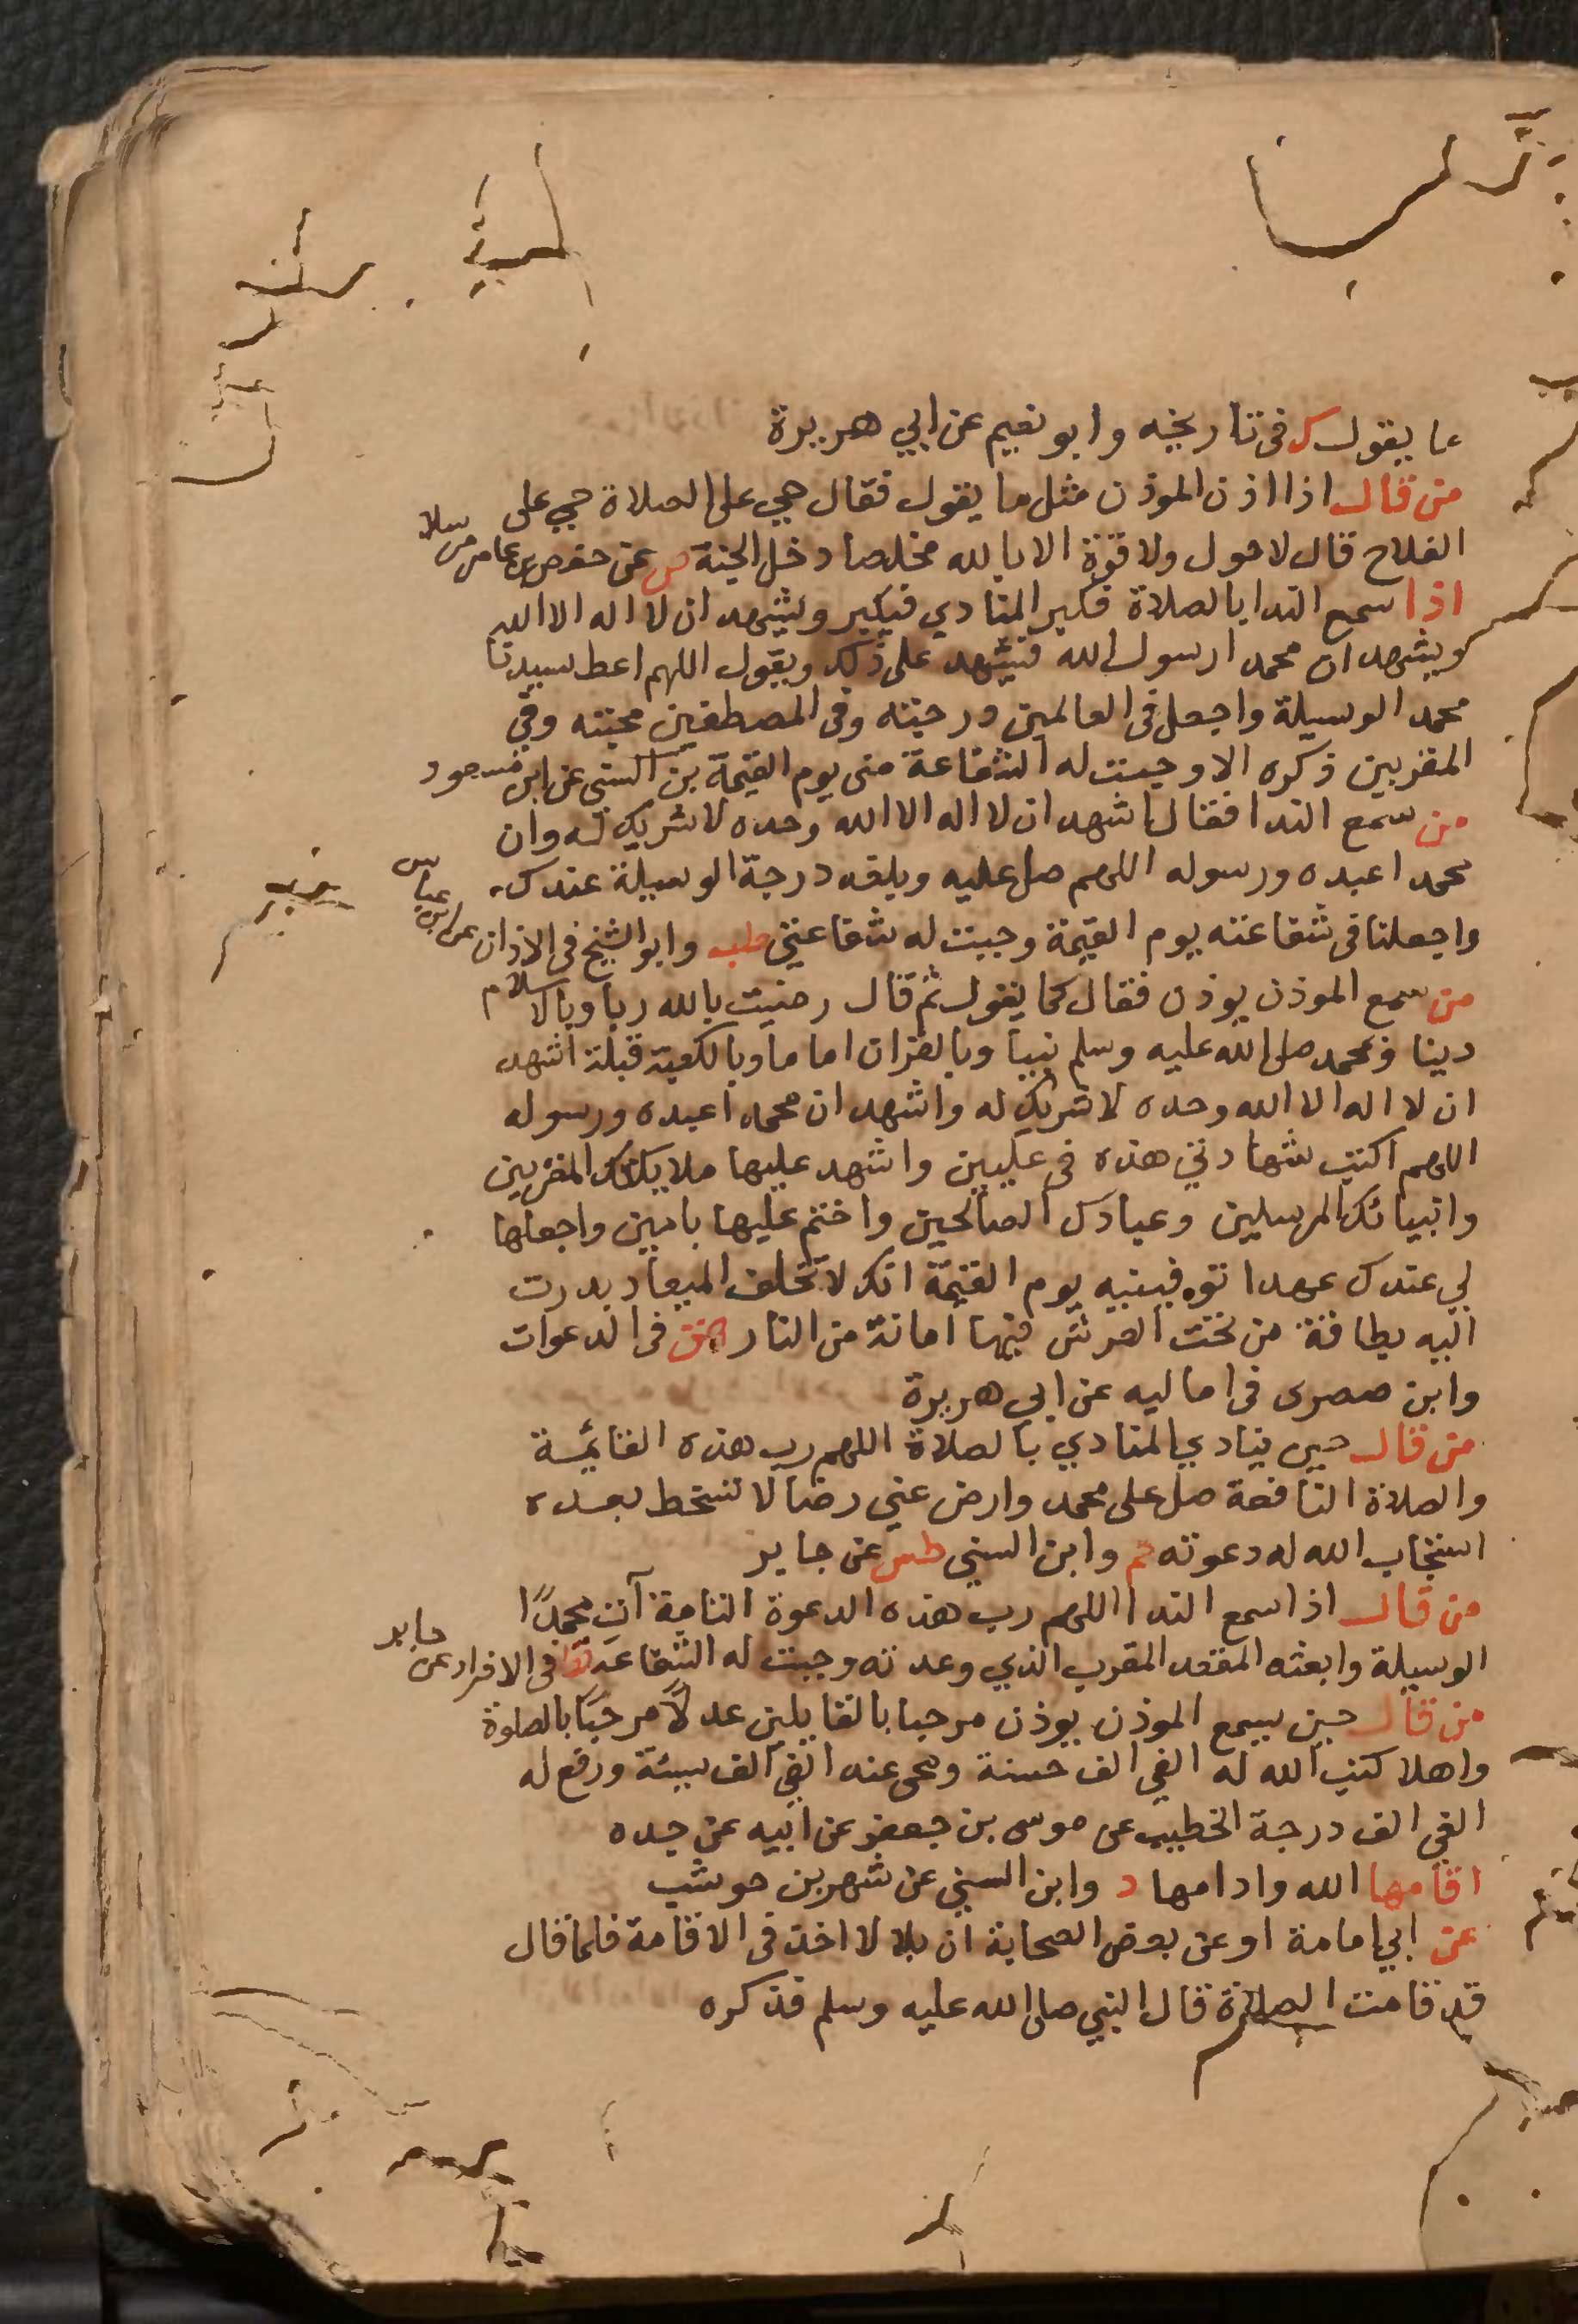 ما يقول ك في تاريخه وابو نعيم عن ابي هريرة
من قال اذا اذن الموذن مثل ما يقول فقال حي على الصلاة حي على
الفلاح قال لا حول ولا قوة الا بالله مخلصا دخل الجنة ص عن حفص بن عاصم مرسلا
اذا سمع الندا بالصلاة فكبر المنادي فيكبر ويشهد ان لا اله الا الله
ويشهد ان محمدا رسول الله فيشهد على ذلك ويقول اللهم اعط سيدنا
محمد الوسيلة واجعل في العالمين درجته وفي المصطفين محبته وفي
المقربين ذكره الا وجبت له الشفاعة مني يوم القيمة بن السني عن ابن مسعود
من سمع الندا فقال اشهد ان لا اله الا الله وحده لا شريك له وان
محمدا عبده ورسوله اللهم صل عليه وبلغه درجة الوسيلة عندك
واجعلنا في شفاعته يوم القيمة وجبت له شفاعتي طب وابو الشيخ في الاذان عن ابن عباس
من سمع الموذن يوذن فقال كما يقول ثم قال رضيت بالله ربا وبالاسلام
دينا وبمحمد صلى الله عليه وسلم نبيا وبالقران اماما وبالكعبة قبلة اشهد
ان لا اله الا الله وحده لا شريك له واشهد ان محمدا عبده ورسوله
اللهم اكتب شهادتي هذه في عليين واشهد عليها ملايكتك المقربين
وانبيائك المرسلين وعبادك الصالحين واختم عليها بامين واجعلها
لي عندك عهدا توفينيه يوم القيمة انك لا تخلف الميعاد بدرت
اليه بطاقة من تحت العرش فيها امانة من النار هق في الدعوات
وابن صصرى في اماليه عن ابي هريرة
من قال حين ينادي المنادي بالصلاة اللهم رب هذه القائمة
والصلاة النافعة صل على محمد وارض عني رضا لا تسخط بعده
استجاب الله له دعوته حم وابن السني طس عن جابر
من قال اذا سمع الندا اللهم رب هذه الدعوة التامة آت محمدًا
الوسيلة وابعثه المقعد المقرب الذي وعدته وجبت له الشفاعة قط في الافراد عن جابر
من قال حين يسمع الموذن يوذن مرحبا بالقايلين عدلًا مرحبًا بالصلوة
واهلا كتب الله له الفي الف حسنة ومحى عنه الفي الف سيئة ورفع له
الفي الف درجة الخطيب عن موسى بن جعفر عن ابيه عن جده
اقامها الله وادامها د وابن السني عن شهر بن حوشب
عن ابي امامة او عن بعض الصحابة ان بلالا اخذ في الاقامة فلما قال
قد قامت الصلاة قال النبي صلى الله عليه وسلم فذكره